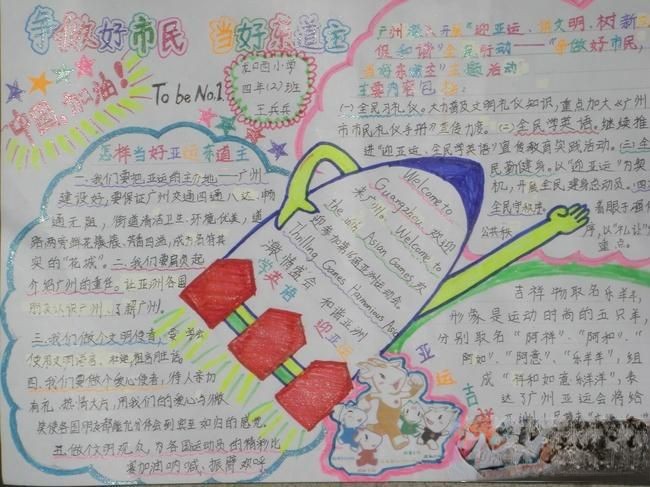 争做好市民 当好东道主
中国,加油!
To be No.1
龙口西小学
四年(2)班
王兵兵
怎样当好亚运东道主
一.我们要把亚运的主办地——广州
建设好,要保证广州交通四通八达,畅
通无阻,街道清洁卫生,环境优美,道
路两旁鲜花
实的“花城”。二.我们要肩负起
介绍广州的责任。让亚洲各国
朋友认识广州、了解广州。
三.我们做个文明使者,要
使用文明语言,
四.我们要做个爱心使者,待人亲切
有礼,热情大方,用我们的爱心与
笑使各国朋友都能在体会到宾至如归的感觉.
五.做个文明观众,为各国运动员的精彩比
赛加油呐喊、振臂欢呼
Welcome to
Guangzhou 欢迎
来广州. Welcome to
the 16th Asian Games 欢
迎参加第16届亚洲运动会.
Thrilling Games Harmonious Asia
激情盛会 和谐亚洲
学英语
迎亚运
广州深入开展“迎亚运、讲文明、树新
促和谐”全民行动——“争做好市民,
当好东道主”主题活动
主要内容包括:
(一)全民习礼仪。大力普及文明礼仪知识,重点加大《广州
市市民礼仪手册》宣传力度。(二)全民学英语。继续推
进“迎亚运、全民学英语”宣传教育实践活动。(三)全
民勤健身。以“迎亚运”为契
机,开展全民健身总动员。四
全民守秩序。着眼于强化
公共秩序,以“礼让
重点。
吉祥物取名乐羊羊,
形象是运动时尚的五只羊,
分别取名“阿祥”、“阿和”、“
阿如”、“阿意”、“乐羊羊”,组
成“祥和如意乐洋洋”,表
达了广州亚运会将给
亚洲
亚运吉祥